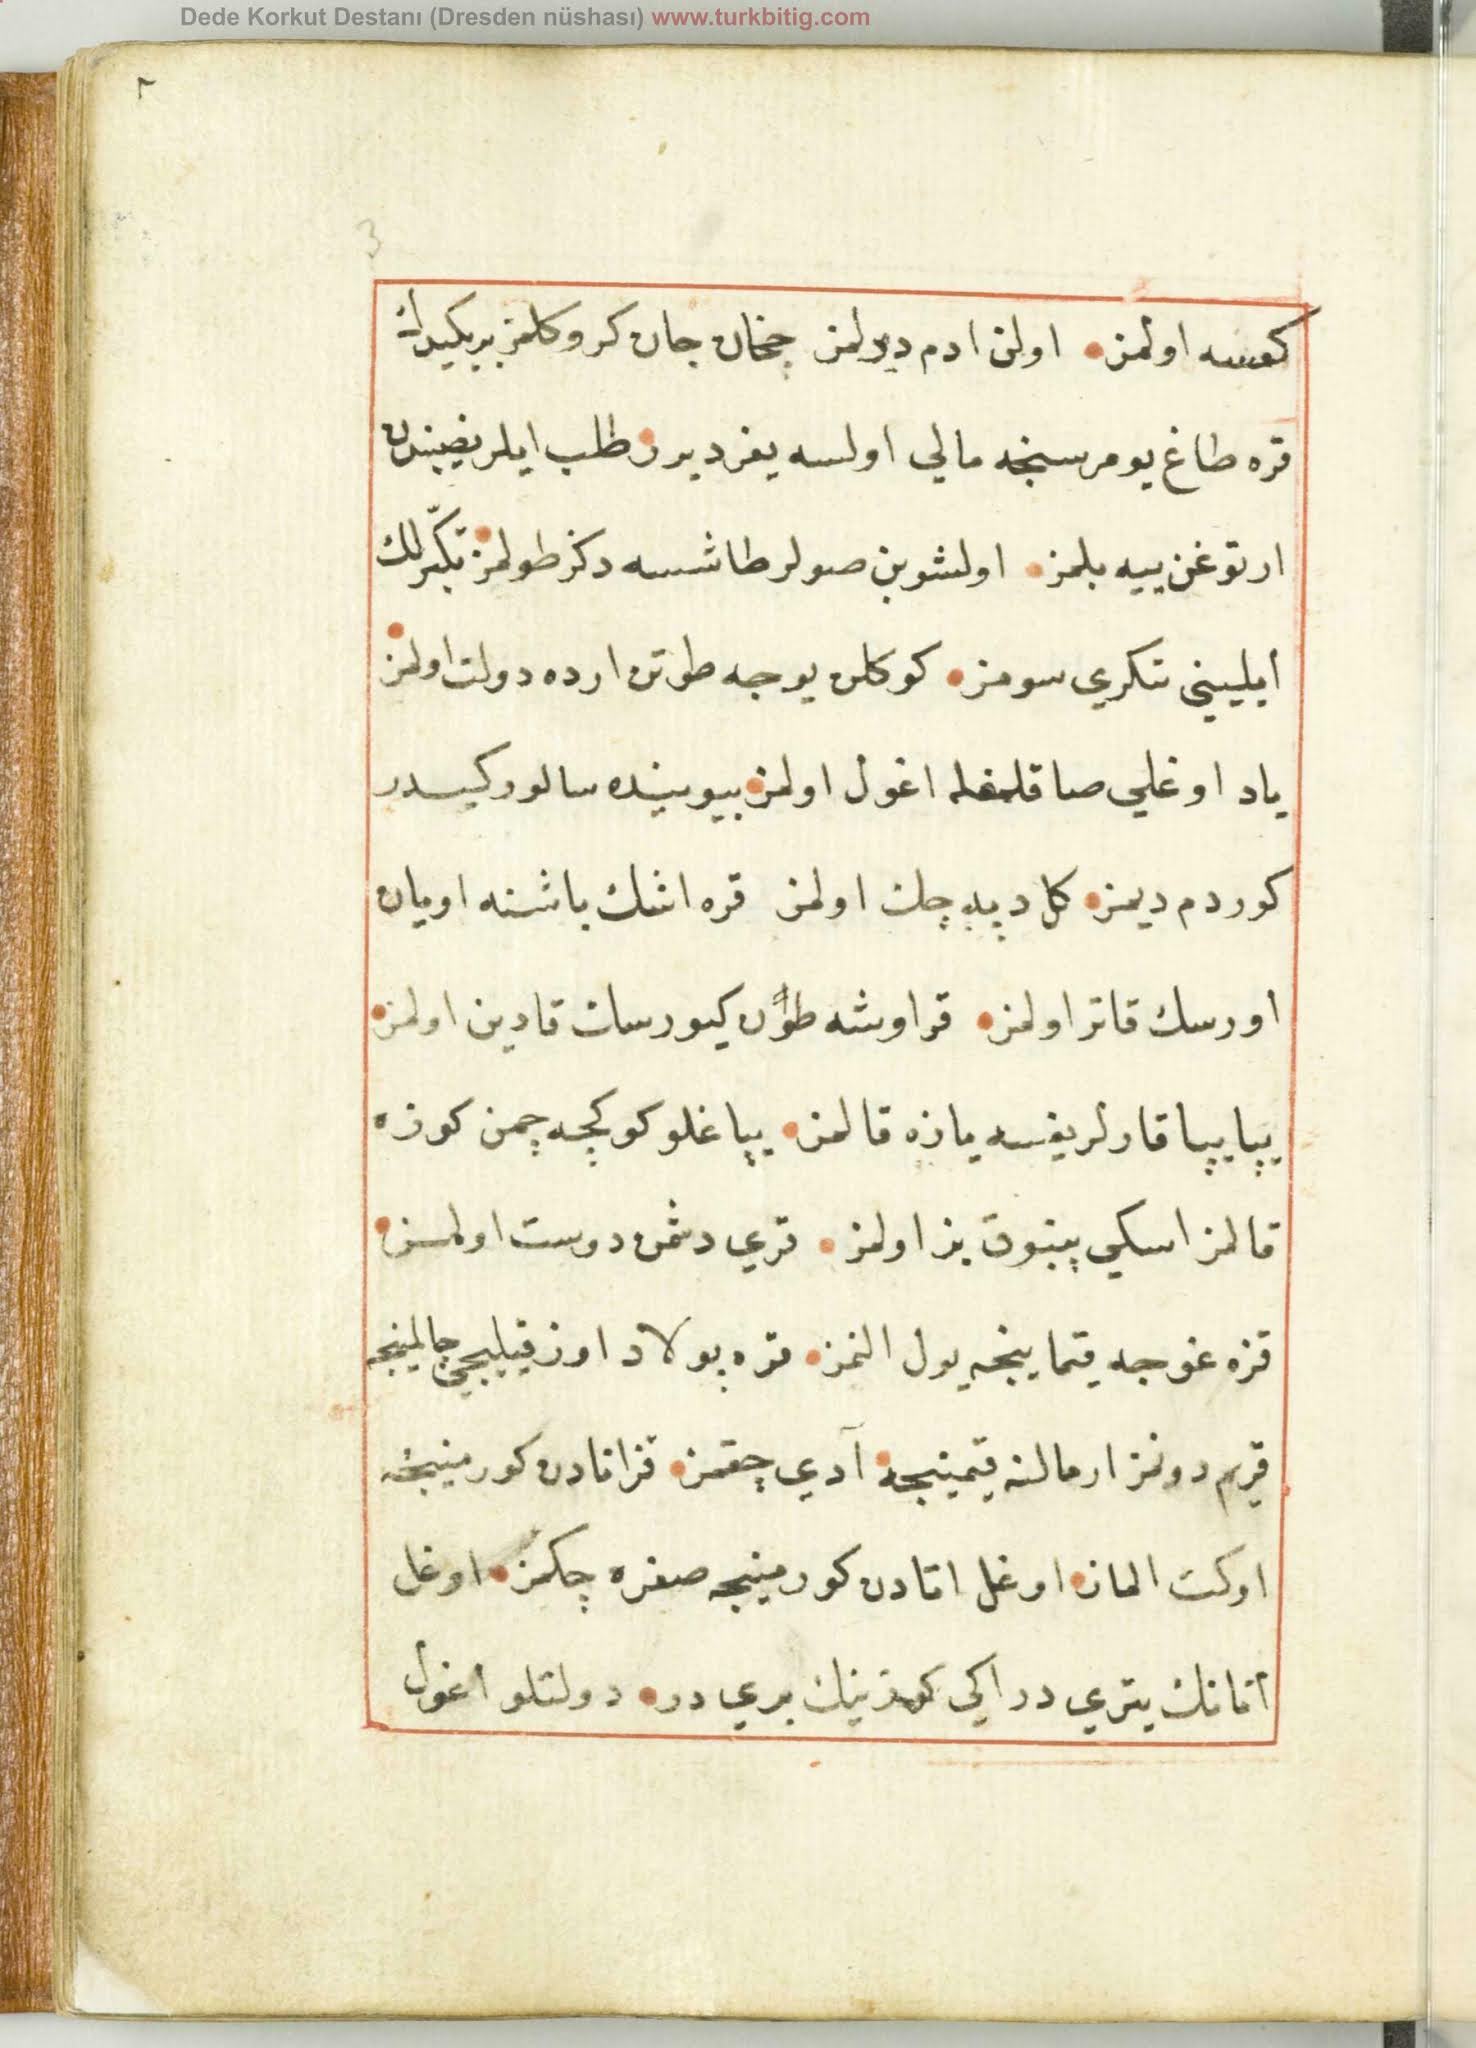 Dede Korkut Destanı (Dresden nüshası) www.turkbitig.com
٨
3
كمسه اولمز اولن ادم دیرلمز چخان جان كرو كلمز بر یكیدك
قره طاغ یومرسنجه مالی اولسه یغر دیرر طلب ایلر نصیبندن
ارتوغن ییه بلمز اولشوبن صولر طاشسه دكز طولمز تكبّرلك
ایلیینی تنكری سومز كوكلن یوجه طوتن ارده دولت اولمز
یاد اوغلی صاقلمغله اغول اولمز بیویینده سالور كیدر
كوردم دیمز كل دپه چك اولمز قره اشك باشنه اویان
اورسك قاتر اولمز قراوشه طون كیورسك قادین اولمز
یپا یپا قارلر یغسه یازه قالمز یپاغلو كوكجه چمن كوزه
قالمز اسكی پنبوق بز اولمز قری دشمن دوست اولمز
قزه غوجه قیماینجه یول النمز قره پولاد اوز قیلیجی چالمینجه
قریم دونمز ار مالنه قیمینجه آدی چقمز قز انادن كورمینجه
اوكت الماز اوغل اتادن كورمینجه صفره چكمز اوغل
اتانك یتری در ایكی كوزینك بری در دولتلو اغول